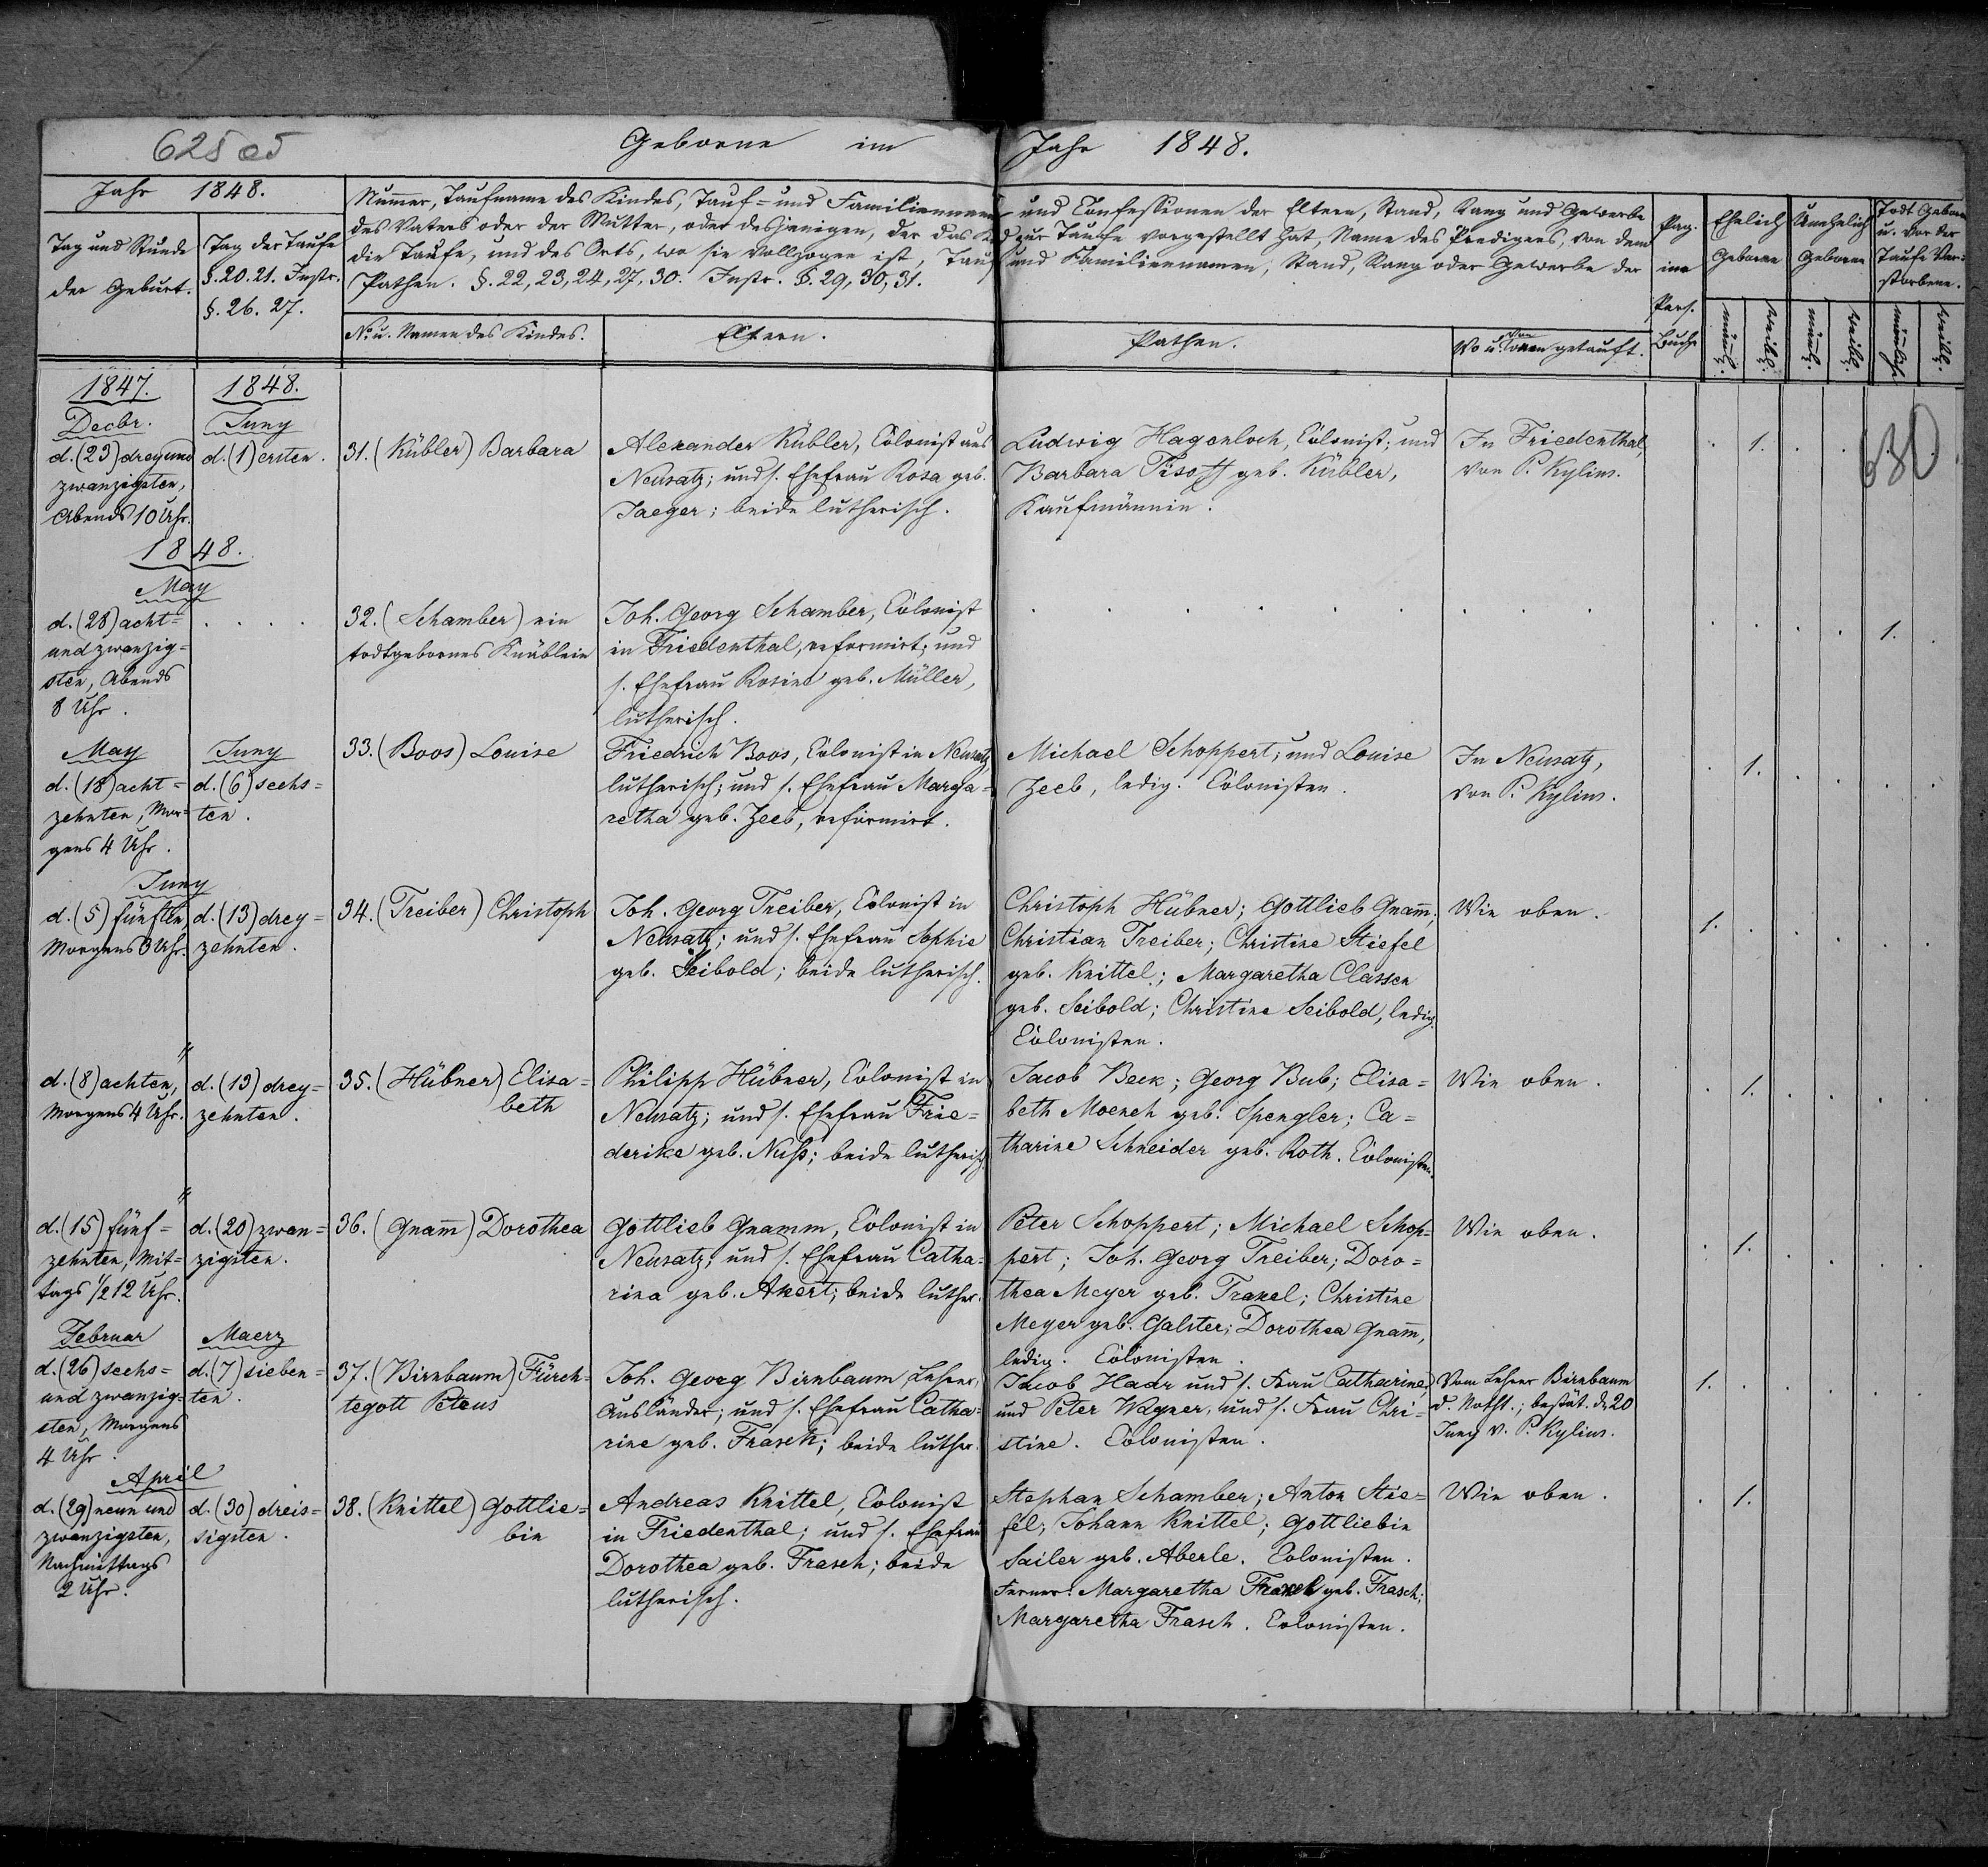 625 ad
Geborne im Jahr 1848.
Jahr 1848.
Tag und Stunde der Geburt.
Tag der Taufe §. 20. 21. Instr. §. 26. 27.
Num̅er, Taufname des Kindes, Tauf= und Familiennamen und Confessionen der Eltern, Stand, Rang und Gewerbe
des Vaters oder der Mutter, oder desjenigen, der das Kind zur Taufe vorgestellt hat, Name des Predigers, von dem
die Taufe, und des Orts, wo sie vollzogen ist, Tauf und Familiennamen, Stand, Rang oder Gewerbe der
Pathen. §. 22, 23, 24, 27, 30. Instr. §. 29, 30, 31.
No. u. Namen des Kindes.
Eltern.
Pathen.
Wo u. von wem getauft.
Pag. im Pers. Buche
Ehelich Geborne
Unehelich Geborne
Todt Geborne u. vor der Taufe Verstorbene.
männl.
weibl.
männl.
weibl.
männl.
weibl.
630
1847.
Decbr.
d. (23) dreyund
zwanzigsten,
Abends 10 Uhr.
1848.
Juny
d. (1) ersten.
31. (Kübler) Barbara
Alexander Kübler, Colonist aus
Neusatz; und s. Ehefrau Rosa geb.
Jaeger; beide lutherisch.
Ludwig Hagenloch, Colonist; und
Barbara Pisoff geb. Kübler,
Kaufmännin.
In Friedenthal,
von P. Kylius.
1.
1848.
May
d. (28) acht=
und zwanzig=
sten, Abends
8 Uhr.
32. (Schamber) ein
todtgebornes Knäblein
Joh. Georg Schamber, Colonist
in Friedenthal, reformirt; und
s. Ehefrau Rosine geb. Müller,
lutherisch.
1.
May
d. (18) acht=
zehnten, Mor=
gens 4 Uhr.
Juny
d. (6) sechs=
ten.
33. (Boos) Louise
Friedrich Boos, Colonist in Neusatz,
lutherisch; und s. Ehefrau Marga=
retha geb. Zeeb, reformirt.
Michael Schoppert; und Louise
Zeeb, ledig. Colonisten.
In Neusatz,
von P. Kylius.
1.
Juny
d. (5) fünften,
Morgens 3 Uhr.
d. (13) drey=
zehnten.
34. (Treiber) Christoph
Joh. Georg Treiber, Colonist in
Neusatz; und s. Ehefrau Sophie
geb. Seibold; beide lutherisch.
Christoph Hübner; Gottlieb Gnam̅;
Christian Treiber; Christine Stiefel
geb. Knittel; Margaretha Classen
geb. Seibold; Christine Seibold, ledig.
Colonisten.
Wie oben.
1.
d. (8) achten,
Morgens 4 Uhr.
d. (13) drey=
zehnten.
35. (Hübner) Elisa=
beth
Philipp Hübner, Colonist in
Neusatz; und s. Ehefrau Frie=
derike geb. Nuß; beide lutherisch.
Jacob Beck; Georg Bub; Elisa=
beth Moench geb. Spengler; Ca=
tharine Schneider geb. Roth. Colonisten.
Wie oben.
1.
d. (15) fünf=
zehnten, Mit=
tags 1/2 12 Uhr.
d. (20) zwan=
zigsten.
36. (Gnam̅) Dorothea
Gottlieb Gnamm, Colonist in
Neusatz; und s. Ehefrau Catha=
rina geb. Akert; beide luther.
Peter Schoppert; Michael Schop=
pert; Joh. Georg Treiber; Doro=
thea Meyer geb. Traxel; Christine
Meyer geb. Galster; Dorothea Gnam̅,
ledig. Colonisten.
Wie oben.
1.
Februar
d. (26) sechs=
und zwanzig=
sten, Morgens
4 Uhr.
Maerz
d. (7) sieben=
ten.
37. (Birnbaum) Fürch=
tegott Petrus
Joh. Georg Birnbaum, Lehrer,
Ausländer; und s. Ehefrau Catha=
rine geb. Frasch; beide luther.
Jacob Haar und s. Frau Catharine;
und Peter Wagner, und s. Frau Chri=
stine. Colonisten.
Vom Lehrer Birnbaum
d. Notht.; bestät. d. 20
Juny v. P. Kylius.
1.
April
d. (29) neun und
zwanzigsten,
Nachmittags
2 Uhr.
d. (30) dreis=
sigsten.
38. (Knittel) Gottlie=
bin
Andreas Knittel, Colonist
in Friedenthal; und s. Ehefrau
Dorothea geb. Frasch; beide
lutherisch.
Stephan Schamber; Anton Stie=
fel; Johann Knittel; Gottliebin
Sailer geb. Aberle. Colonisten.
Ferner: Margaretha Traxel geb. Frasch;
Margaretha Frasch. Colonisten.
Wie oben.
1.